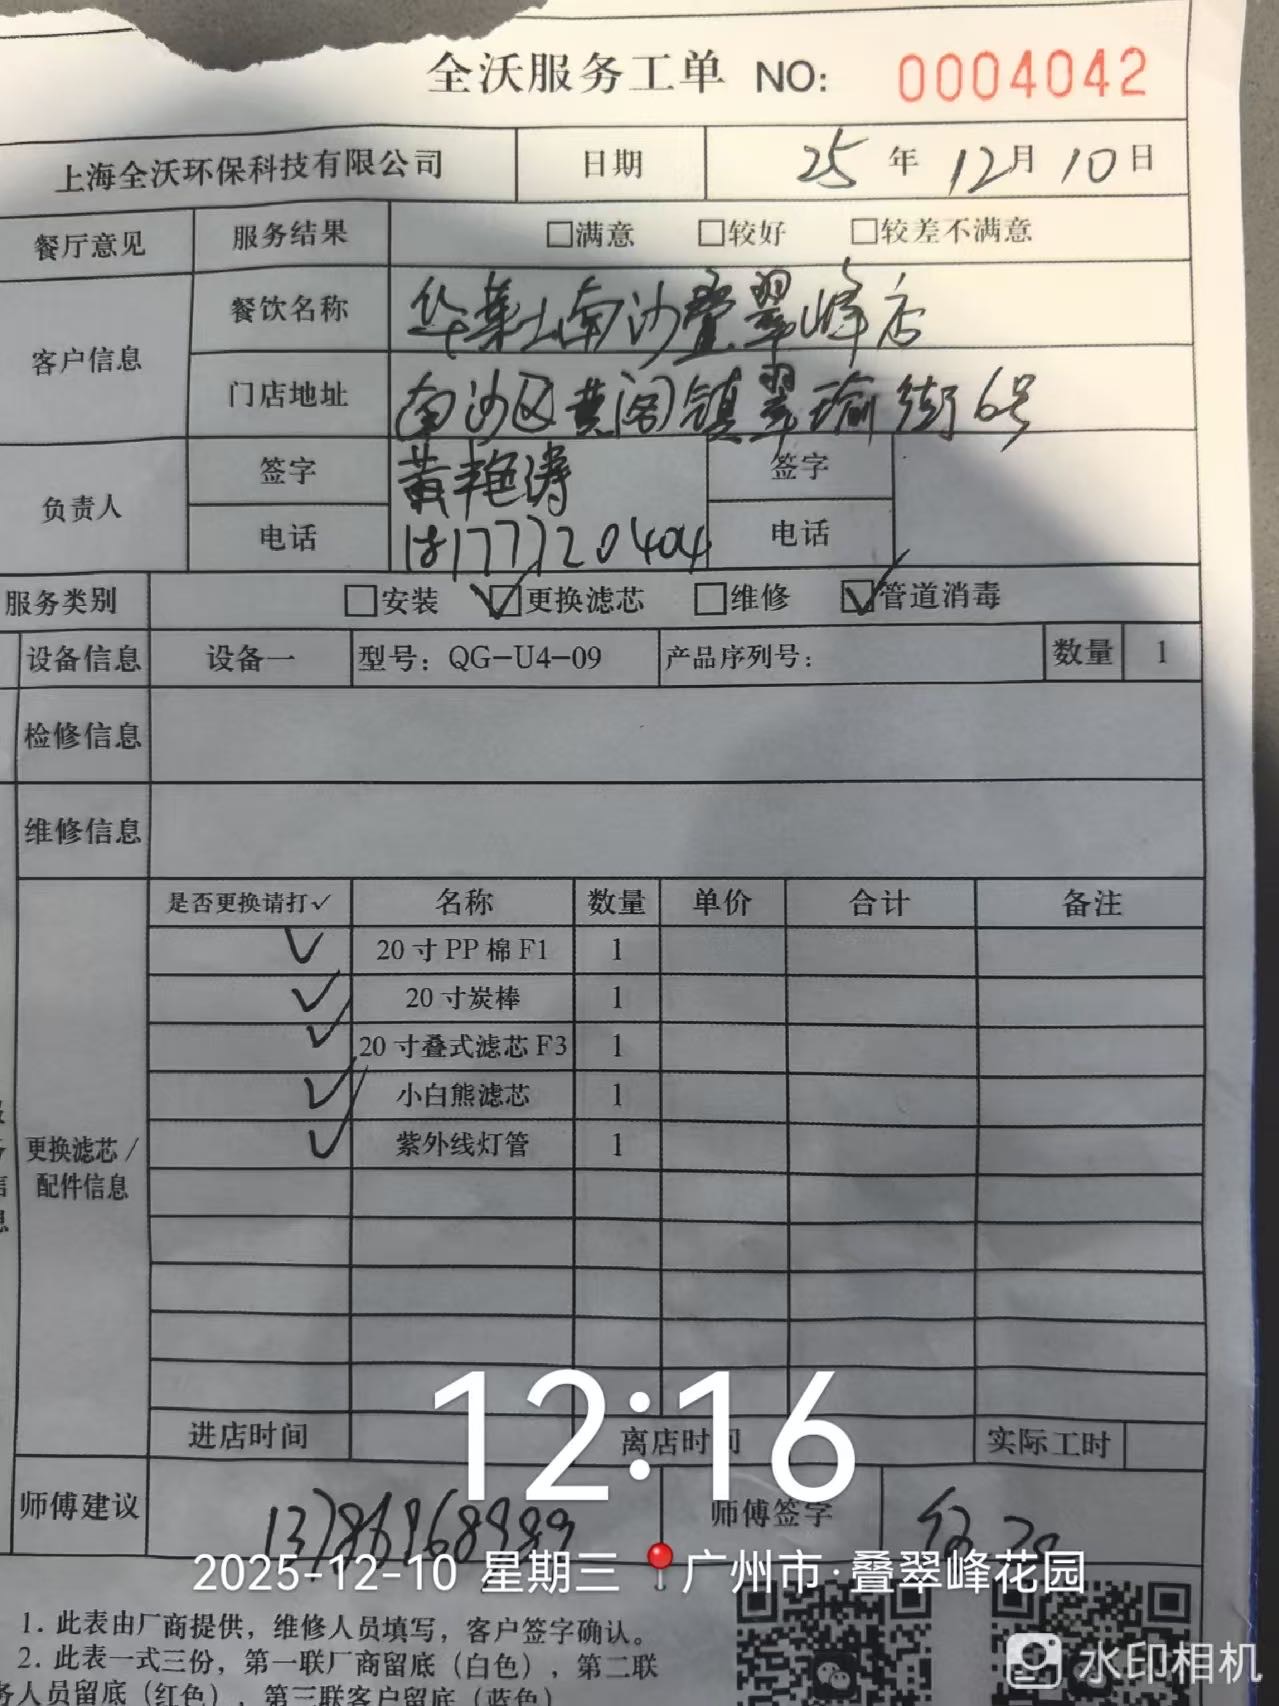 全沃服务工单 NO: 0004042
上海全沃环保科技有限公司 日期 25年12月10日
餐厅意见 服务结果 □满意 □较好 □较差不满意
客户信息 餐饮名称 华莱士南沙叠翠峰店
门店地址 南沙区黄阁镇翠瑜街6号
负责人 签字 黄艳涛 签字
电话 18177720404 电话
服务类别 □安装 ☑更换滤芯 □维修 ☑管道消毒
设备信息 设备一 型号：QG-U4-09 产品序列号： 数量 1
检修信息
维修信息
是否更换请打✓ 名称 数量 单价 合计 备注
✓ 20寸PP棉F1 1
✓ 20寸炭棒 1
✓ 20寸叠式滤芯F3 1
✓ 小白熊滤芯 1
✓ 紫外线灯管 1
更换滤芯/
配件信息
进店时间 离店时间 实际工时
12:16
师傅建议 师傅签字
2025-12-10 星期三 广州市·叠翠峰花园
1. 此表由厂商提供，维修人员填写，客户签字确认。
2. 此表一式三份，第一联厂商留底（白色），第二联
务人员留底（红色），第三联客户留底（蓝色）
水印相机